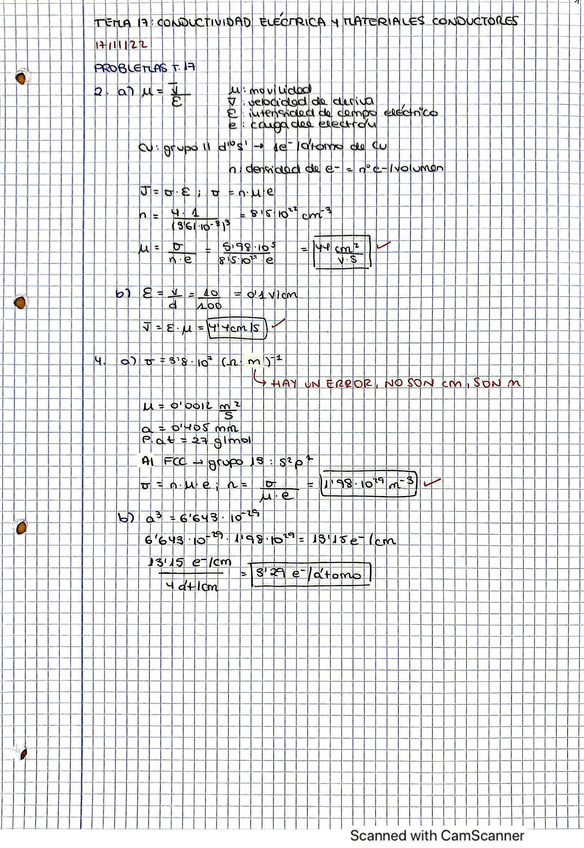 TEMA 17: CONDUCTIVIDAD ELÉCTRICA Y MATERIALES CONDUCTORES
17/11/22
PROBLEMAS T.17
2. a) μ = v̅/ε
μ: movilidad
v̅: velocidad de deriva
ε: intensidad de campo eléctrico
e: carga del electrón
Cu: grupo 11 d¹⁰s¹ → 1e⁻/átomo de Cu
n: densidad de e⁻ = nº e⁻/volumen
J = σ·ε ; σ = n·μ·e
n = 4·1/(3'61·10⁻⁸)³ = 8'5·10²² cm⁻³
μ = σ/n·e = 5'98·10⁵/8'5·10²² e = 44 cm²/V·S ✓
b) ε = V/d = 10/100 = 0'1 V/cm
v̅ = ε·μ = 4'4 cm/s ✓
4. a) σ = 3'8·10⁷ (Ω·m)⁻¹
↳ HAY UN ERROR, NO SON cm, SON m
μ = 0'0012 m²/S
a = 0'405 mm
P.at = 27 g/mol
Al FCC → grupo 13: s²p¹
σ = n·μ·e ; n = σ/μ·e = 1'98·10²⁹ m⁻³ ✓
b) a³ = 6'643·10⁻²⁹
6'643·10⁻²⁹·1'98·10²⁹ = 13'15 e⁻/cm
13'15 e⁻/cm / 4 át/cm = 3'29 e⁻/átomo
Scanned with CamScanner